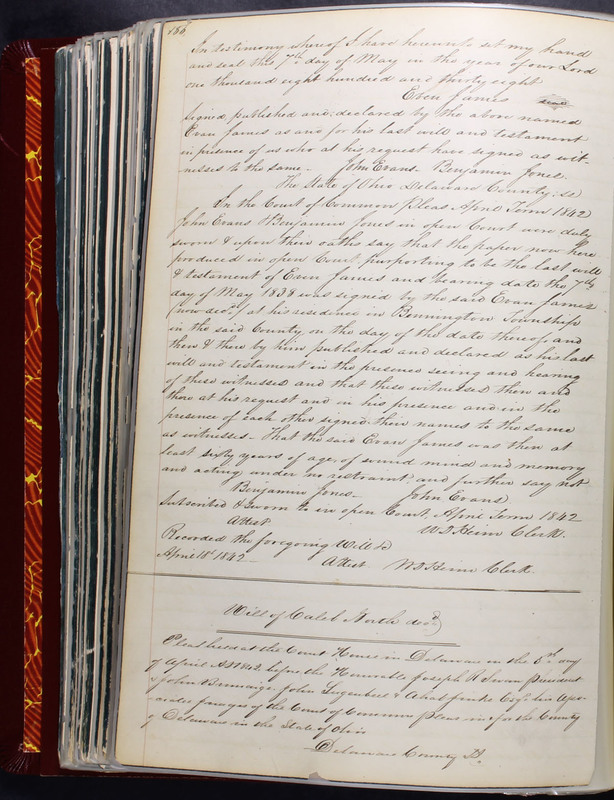 In testimony whereof I have hereunto set my hand
and seal this 7th day of May in the year of our Lord
one thousand eight hundred and thirty eight
Even James seal
Signed, published and, declared by the above named
Evan James as and for his last will and testament
in presence of us who at his request have signed as wit-
nesses to the same - John Evans Benjamin Jones.
The State of Ohio Delaware County, ss
In the Court of Common Pleas April Term 1842
John Evans & Benjamin Jones in open Court were duly
sworn & upon their oaths say that the paper now here
produced in open Court, purporting to be the last will
& testament of Even James and bearing date the 7th
day of May 1838 was signed by the said Evan James
(now decd) at his residence in Bennington Township
in the said County on the day of the date thereof, and
then & there by him published and declared as his last
will and testament in the presence seeing and hearing
of these witnesses and that these witnesses then and
there at his request and in his presence and in the
presence of each other signed their names to the same
as witnesses - That the said Evan James was then at
least sixty years of age, of sound mind and memory
and acting under no restraint, and further say not
Benjamin Jones - John Evans
Subscribed & sworn to in open Court, April Term 1842
Attest W D Heim Clerk.
Recorded the foregoing Will &
April 18th 1842 - Attest W D Heim Clerk.
Will of Caleb North decd
Pleas held at the Court House in Delaware on the 5th day
of April AD 1842, before the Honorable Joseph R Swan President
& John Brundage, John Lugenbeel & Esqrs his Asso-
-ciates Judges of the Court of Common Pleas in & for the County
of Delaware in the State of Ohio
Delaware County Ss.